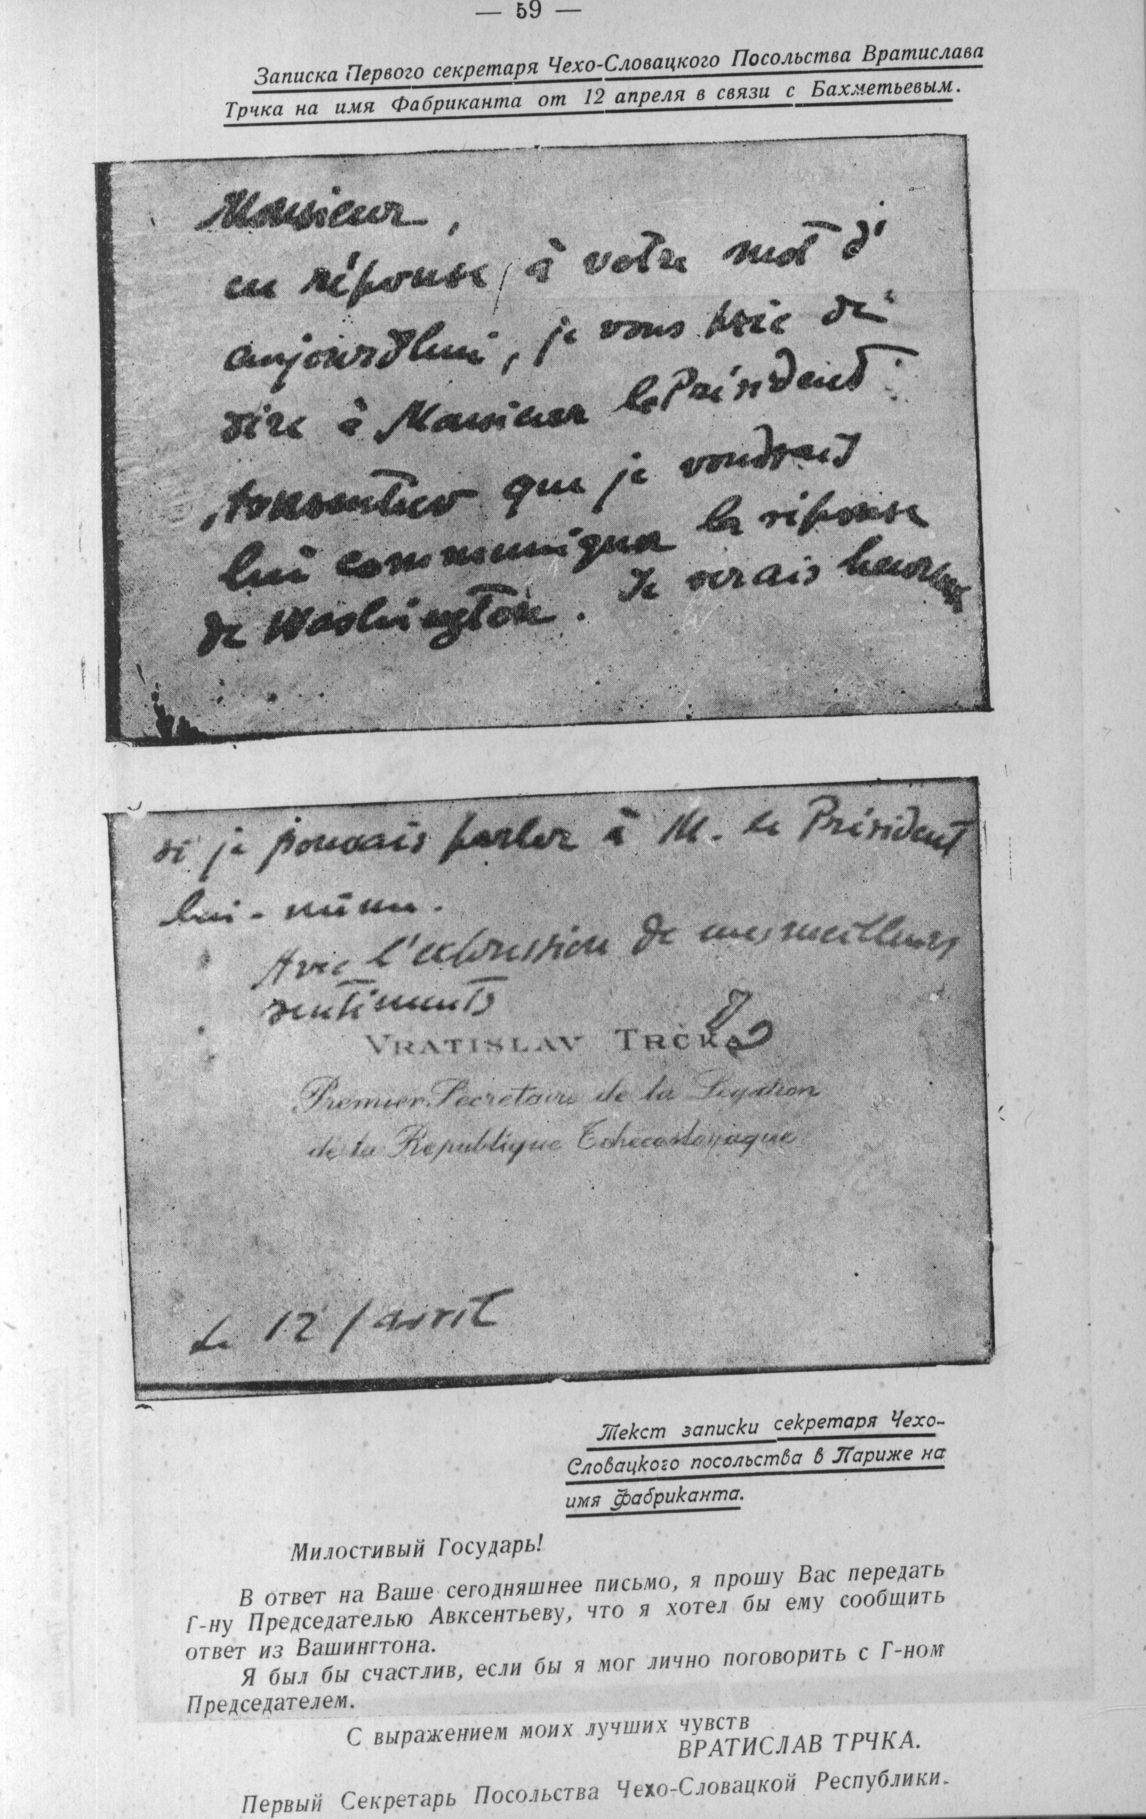 — 59 —
Записка Первого секретаря Чехо-Словацкого Посольства Вратислава
Трчка на имя Фабриканта от 12 апреля в связи с Бахметьевым.
Monsieur,
en réponse à votre mot d'
aujourd'hui, je vous prie de
dire à Monsieur le Président
que je voudrais
lui communiquer la réponse
de Washington. Je serais heureux
si je pouvais parler à M. le Président
lui-même.
Avec l'expression de mes meilleurs
sentiments
VRATISLAV TRČKA
Premier Secrétaire de la Légation
de la République Tchécoslovaque
Le 12/avril
Текст записки секретаря Чехо-
Словацкого посольства в Париже на
имя фабриканта.
Милостивый Государь!
В ответ на Ваше сегодняшнее письмо, я прошу Вас передать
Г-ну Председателю Авксентьеву, что я хотел бы ему сообщить
ответ из Вашингтона.
Я был бы счастлив, если бы я мог лично поговорить с Г-ном
Председателем.
С выражением моих лучших чувств
ВРАТИСЛАВ ТРЧКА.
Первый Секретарь Посольства Чехо-Словацкой Республики.